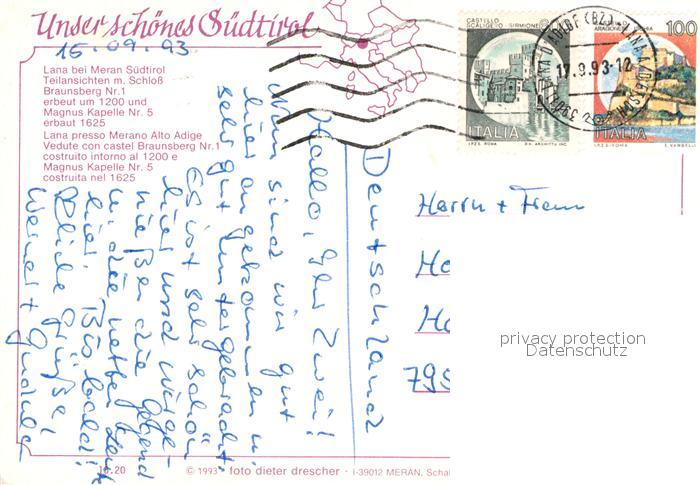 Unser schönes Südtirol
15.09.93
Lana bei Meran Südtirol
Teilansichten m. Schloß
Braunsberg Nr.1
erbeut um 1200 und
Magnus Kapelle Nr. 5
erbaut 1625
Lana presso Merano Alto Adige
Vedute con castel Braunsberg Nr.1
costruito intorno al 1200 e
Magnus Kapelle Nr. 5
costruita nel 1625
Hallo, Ihr Zwei!
Nun sind wir gut
hier angekommen u.
sehr gut untergebracht.
Es ist sehr schön
hier und wir ge-
nießen die Gegend
u. die netten Leute
hier. Bis bald!
Liebe Grüße!
Werner + Gudula
CASTELLO
SCALIGERO SIRMIONE
ITALIA
I.P.Z.S. ROMA
100
ITALIA
I.P.Z.S. ROMA E. VANGELLI
17.9.93-12
Deutschland
Herrn + Frau
Ho
Ho
795
privacy protection
Datenschutz
10.20
© 1993 · foto dieter drescher · I-39012 MERAN, Scha